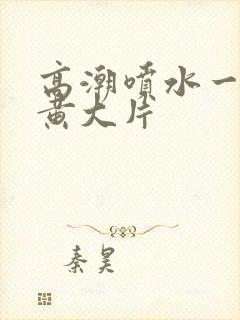 高潮喷水一
黄大片
秦昊